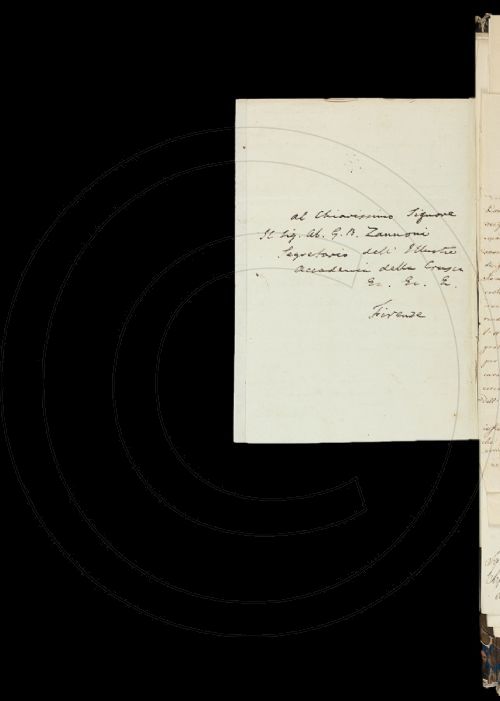 al Chiarissimo Signore
Il Sig. Ab. G. B. Zannoni
Segretario dell' Illustre
Accademia della Crusca
Ec. Ec. Ec.
Firenze